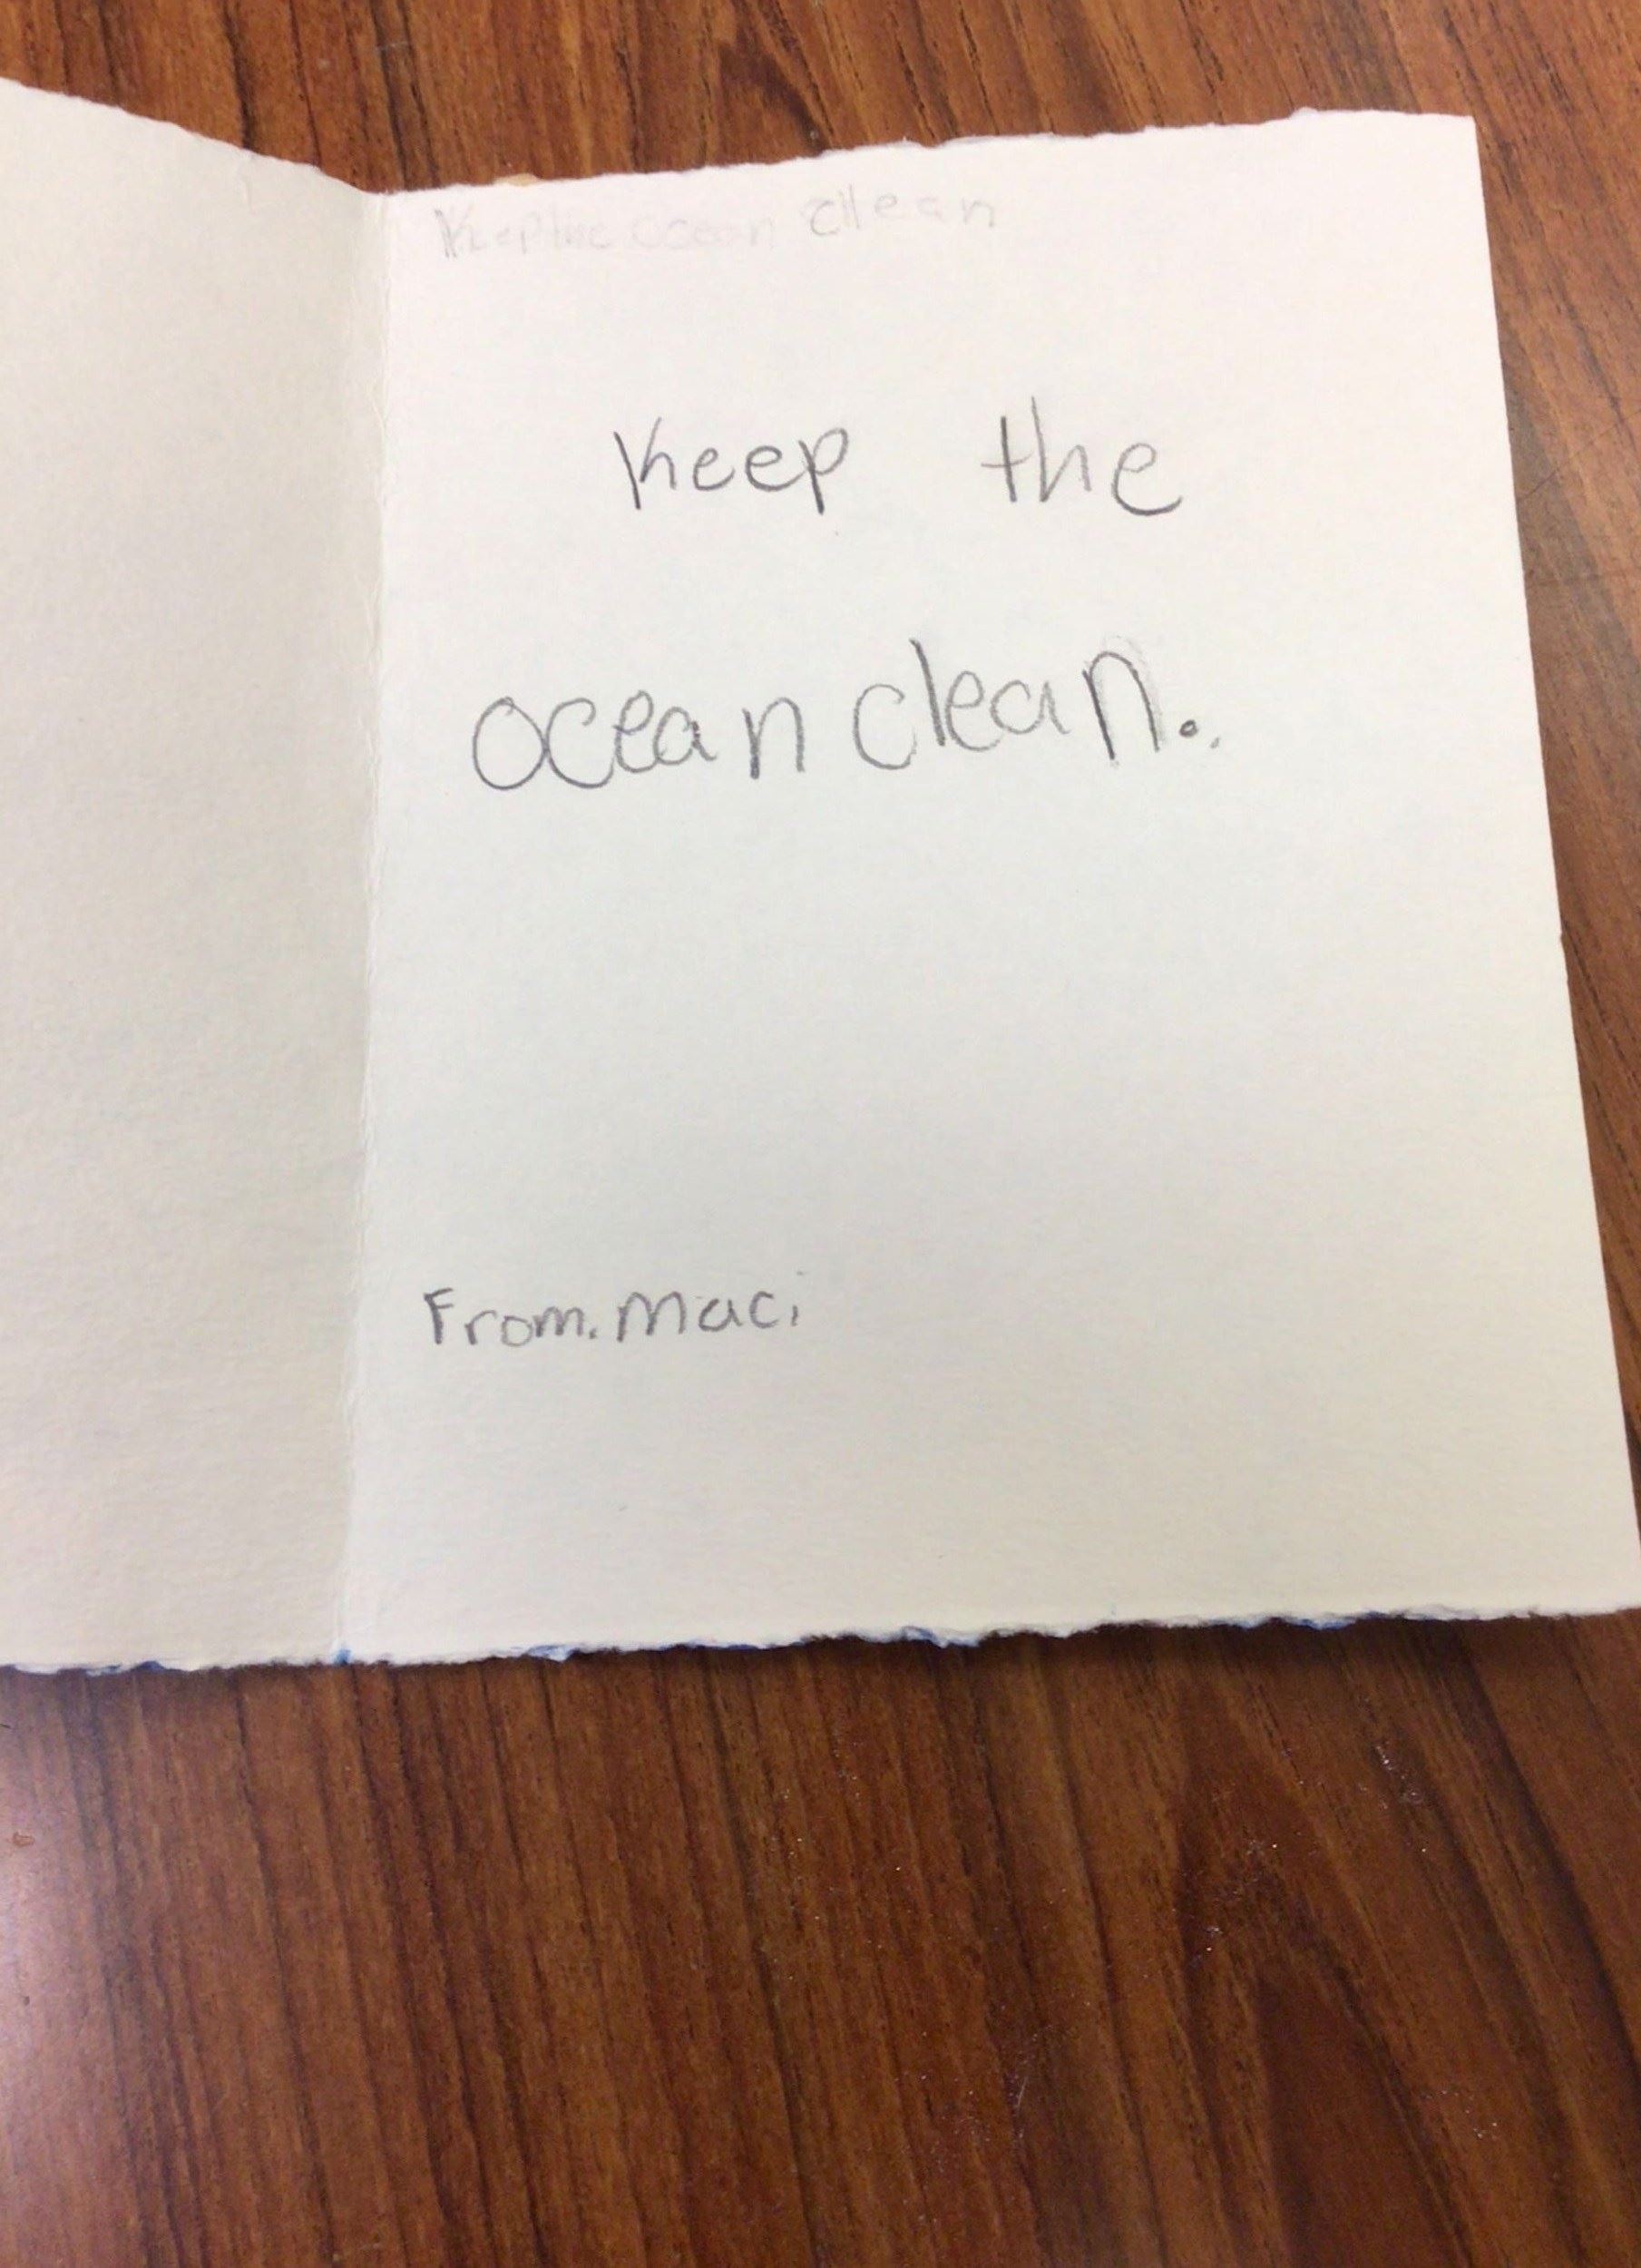 Keep the ocean clean
Keep the
ocean clean.
From. Maci